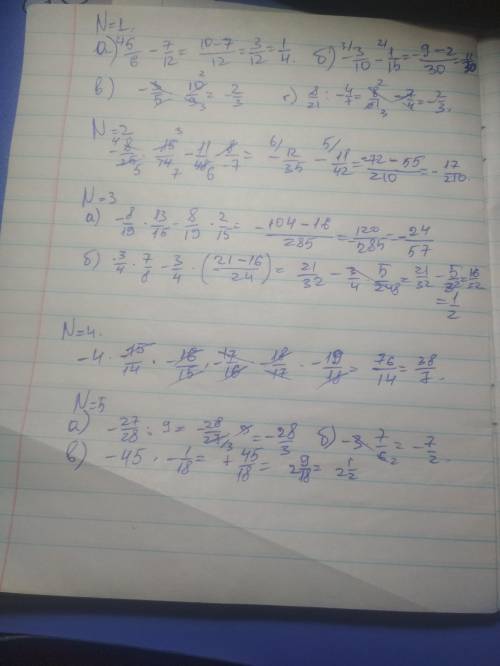 N=1.
а) 5/6 - 7/12 = 10-7/12 = 3/12 = 1/4. б) -3/10 - 1/15 = -9-2/30 = 11/30
в) -3/5 · 10/9 = 2/3 г) 8/21 : -4/7 = 8/21 · -7/4 = -2/3.
N=2
-8/25 · 15/14 - 11/48 · 8/7 = -12/35 - 11/42 = -72-55/210 = -17/210.
N=3
а) -8/19 · 13/15 - 8/19 · 2/15 = -104-16/285 = 120/285 = -24/57
б) 3/4 · 7/8 - 3/4 · (21-16/24) = 21/32 - 3/4 · 5/24 8 = 21/32 - 5/32 = 16/32
= 1/2
N=4.
-4 · 15/14 · -16/15 · -17/16 · -18/17 · -19/18 = 76/14 = 38/7.
N=5
а) -27/28 : 9 = -28/27 · 9 = -28/3 б) -3 · 7/6 = -7/2.
в) -45 · -1/18 = +45/18 = 2 9/18 = 2 1/2